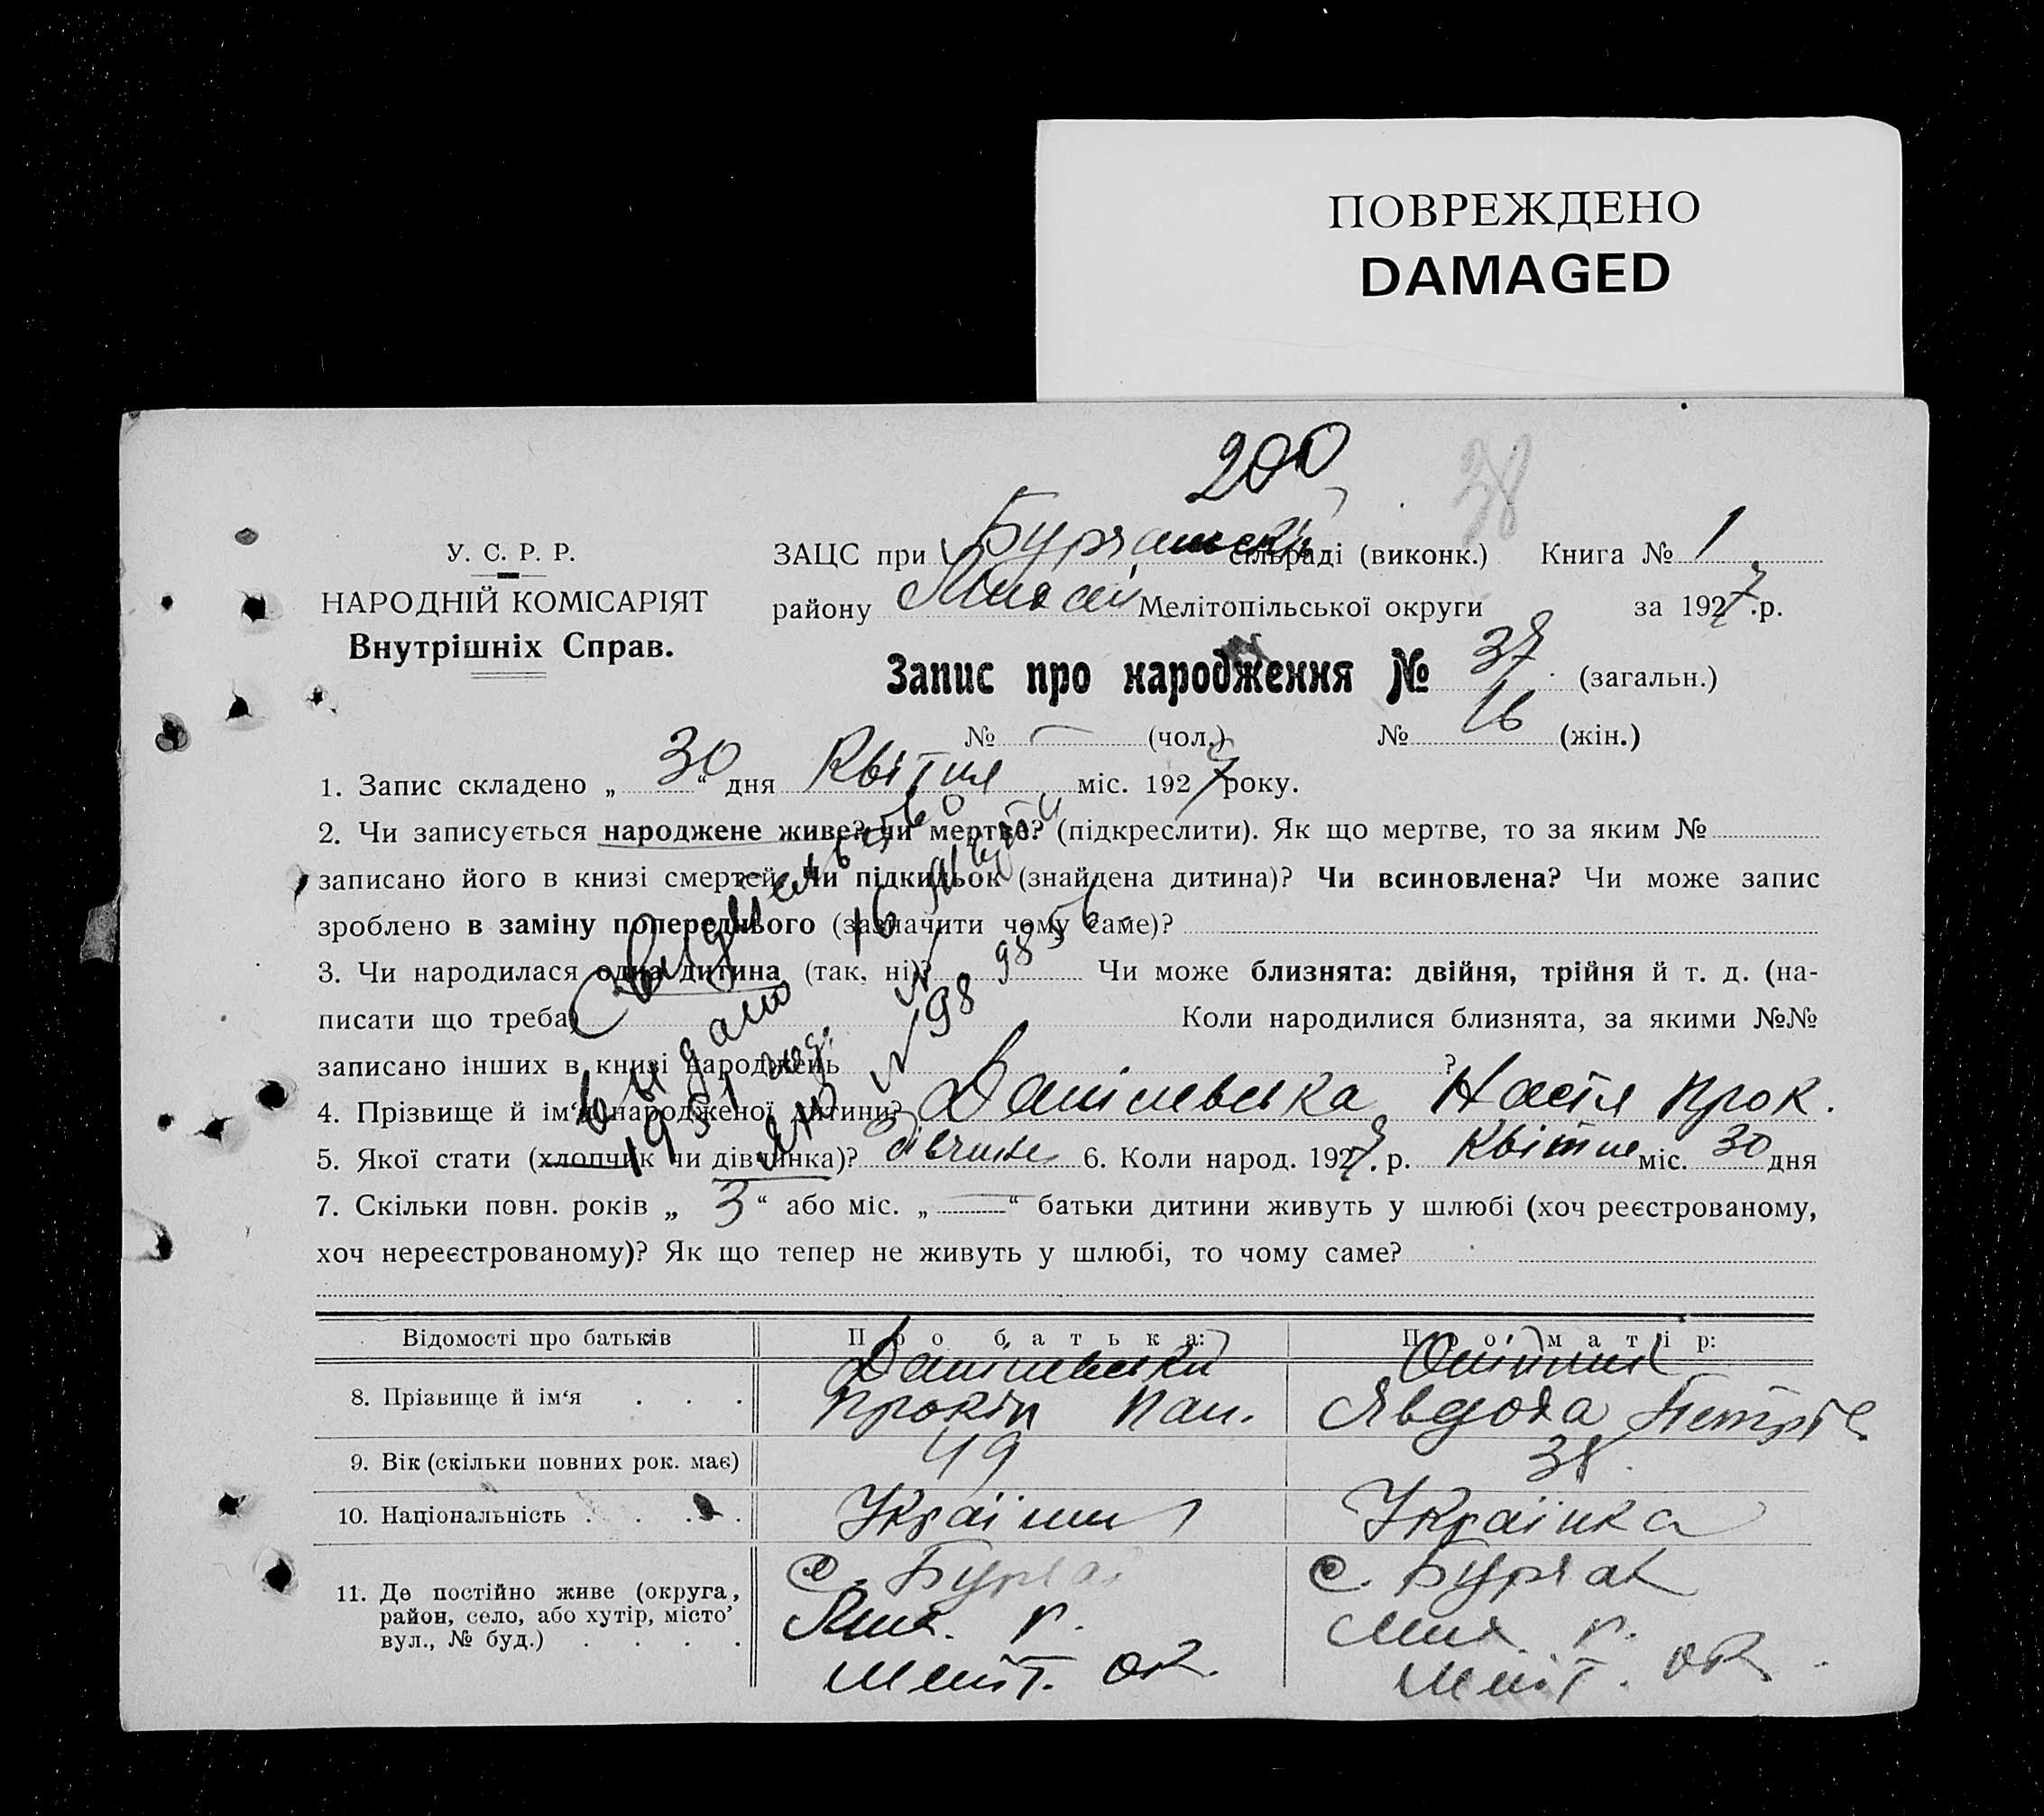 ПОВРЕЖДЕНО
DAMAGED
200
38
У. С. Р. Р.
НАРОДНІЙ КОМІСАРІЯТ
Внутрішніх Справ.
ЗАЦС при сільраді (виконк.) Книга № 1
району Мелітопільської округи за 1927 р.
Запис про народження № 37 (загальн.)
№ — (чол.) № 16 (жін.)
1. Запис складено „ 30 “ дня Квітня міс. 1927 року.
2. Чи записується народжене живе? чи мертве? (підкреслити). Як що мертве, то за яким №
записано його в книзі смертей. Чи підкидьок (знайдена дитина)? Чи всиновлена? Чи може запис
зроблено в заміну попереднього (зазначити чому саме)?
3. Чи народилася одна дитина (так, ні)? Чи може близнята: двійня, трійня й т. д. (на-
писати що треба) Коли народилися близнята, за якими №№
записано інших в книзі народжень ?
4. Прізвище й ім‘я народженої дитини? Данілевська Настя Прок.
5. Якої стати (хлопчик чи дівчинка)? 6. Коли народ. 1927 р. Квітня міс. 30 дня
7. Скільки повн. років „ 3 “ або міс. „ — “ батьки дитини живуть у шлюбі (хоч реєстрованому,
хоч нереєстрованому)? Як що тепер не живуть у шлюбі, то чому саме?
Свидетельство
выдано 16
1951 год.
№ 98
Відомості про батьків Про батька: Про матір:
8. Прізвище й ім‘я . . . Данілевський
Прокіп Пан. Явдоха
9. Вік (скільки повних рок. має) 49 38
10. Національність . . . . Українка
11. Де постійно живе (округа, район, село, або хутір, місто, вул., № буд.) . . . .
с. Бурчак с. Бурчак
р. р.
Меліт. ок. Меліт. ок.